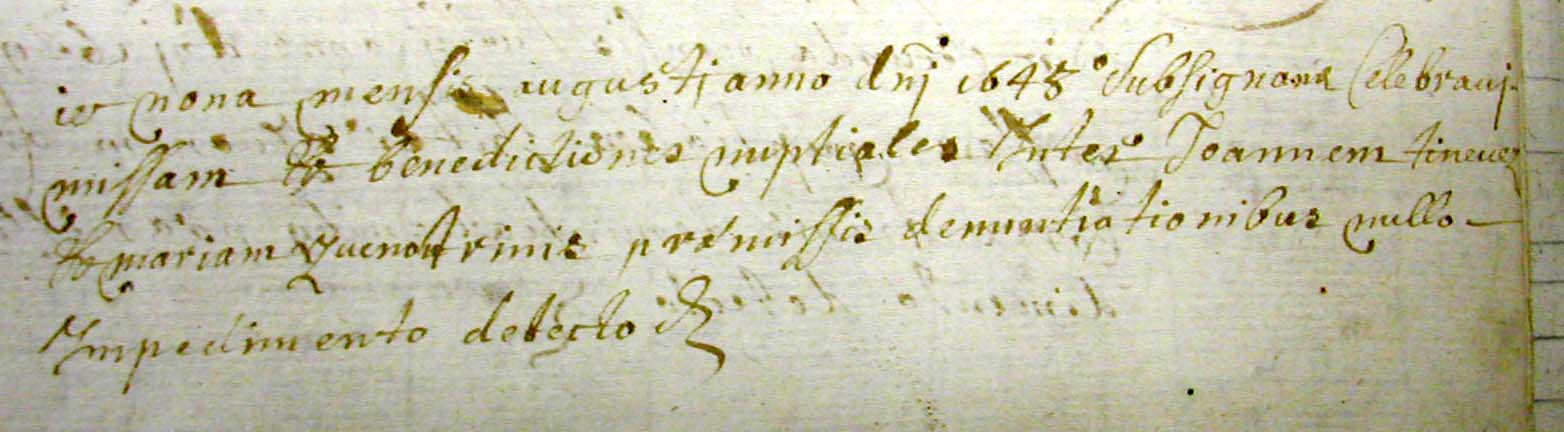 die nona mensis augustj anno dnj 1648° Subsignans Celebravj
missam & benedictiones nuptiales Inter Joannem tinevez
& mariam quenou trinis prémissis denuntiationibus nullo
Impedimento detecto &